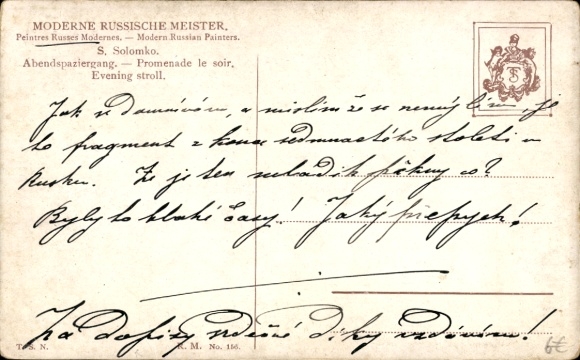 MODERNE RUSSISCHE MEISTER.
Peintres Russes Modernes. — Modern Russian Painters.
S. Solomko.
Abendspaziergang. — Promenade le soir.
Evening stroll.
TS
Jak se domnívám, a myslím že se nemýlím, je
to fragment z konce sedmnactého století v
Rusku. Že je ten mládik pěkný co?
Byly to hlaké časy! Jaký přepych!
Za dopisy srdečné díky vzdávám!
T. S. N. R. M. No. 156.
6€